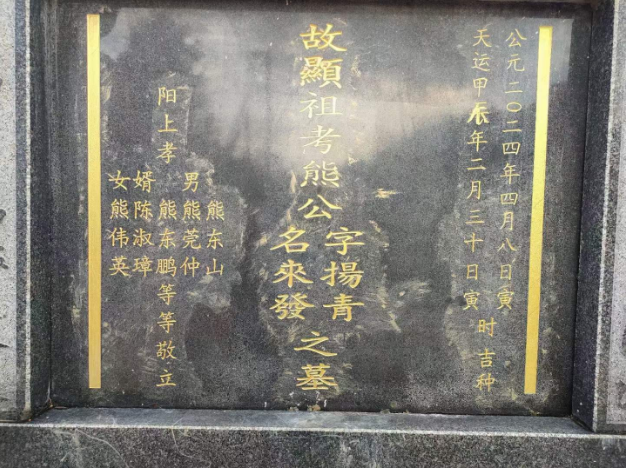 公元二〇二四年四月八日寅
天运甲辰年二月三十日寅
时吉种
故顯祖考熊公
字揚青
名來發
之墓
阳上孝
男
熊东山
熊莞仲
熊东鹏
婿陈淑璋
女熊伟英
等等敬立